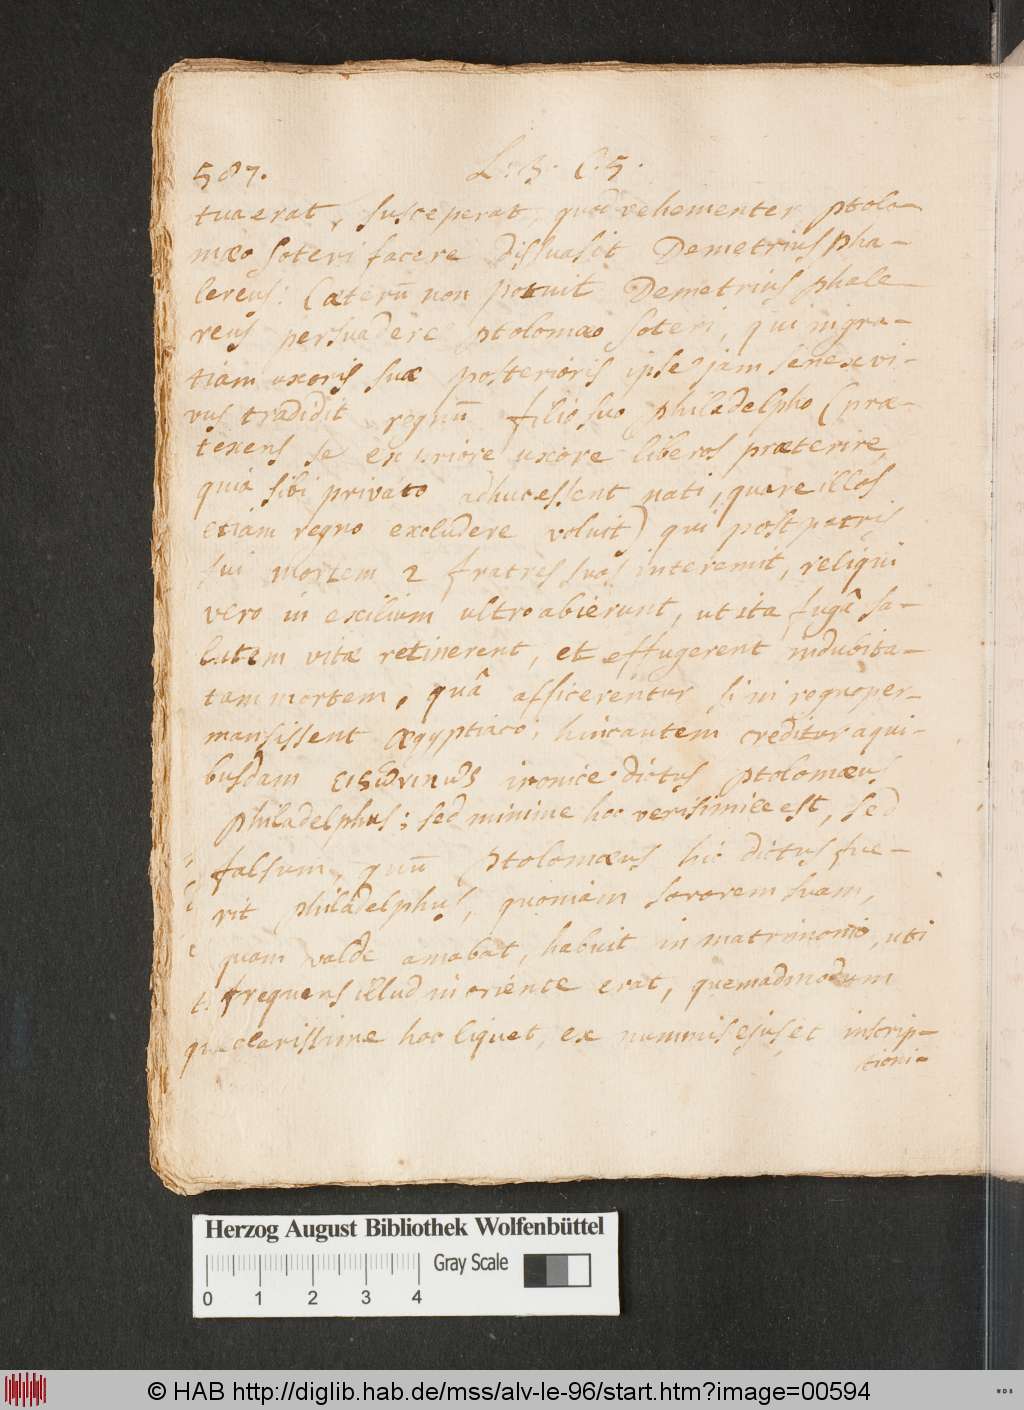 587. L. 3. C. 5.
tua erat, susceperat, quod vehementer ptolo-
mæo soteri facere dissuasit Demetrius pha-
lereus: Cæterū non potuit Demetrius phale-
reus persuadere ptolomæo soteri, qui in gra-
tiam uxoris suæ posterioris ipse jam senex vi-
vus tradidit regnū filio suo philadelpho (præ-
texens se ex priore uxore liberos præterire,
quia sibi privato adhuc essent nati, quare illos
etiam regno excludere voluit) qui post patris
sui mortem 2 fratres suos interemit, reliqui
vero in exilium ultro abierunt, ut ita fugâ sa-
lutem vitæ retinerent, et effugerent indubita-
tam mortem, quâ afficerentur si in regno per-
mansissent ægyptiaco; hinc autem creditur a qui-
busdam ironice dictus ptolomæus
philadelphus; sed minime hoc verisimile est, sed
falsum, quū ptolomæus hic dictus fue-
rit philadelphus, quoniam sororem suam,
quam valde amabat, habuit in matrimonio, uti
frequens illud in oriente erat, quemadmodum
clarissime hoc liquet, ex nummis ejus et inscrip-
tioni-
Herzog August Bibliothek Wolfenbüttel
Gray Scale
0 1 2 3 4
© HAB http://diglib.hab.de/mss/alv-le-96/start.htm?image=00594